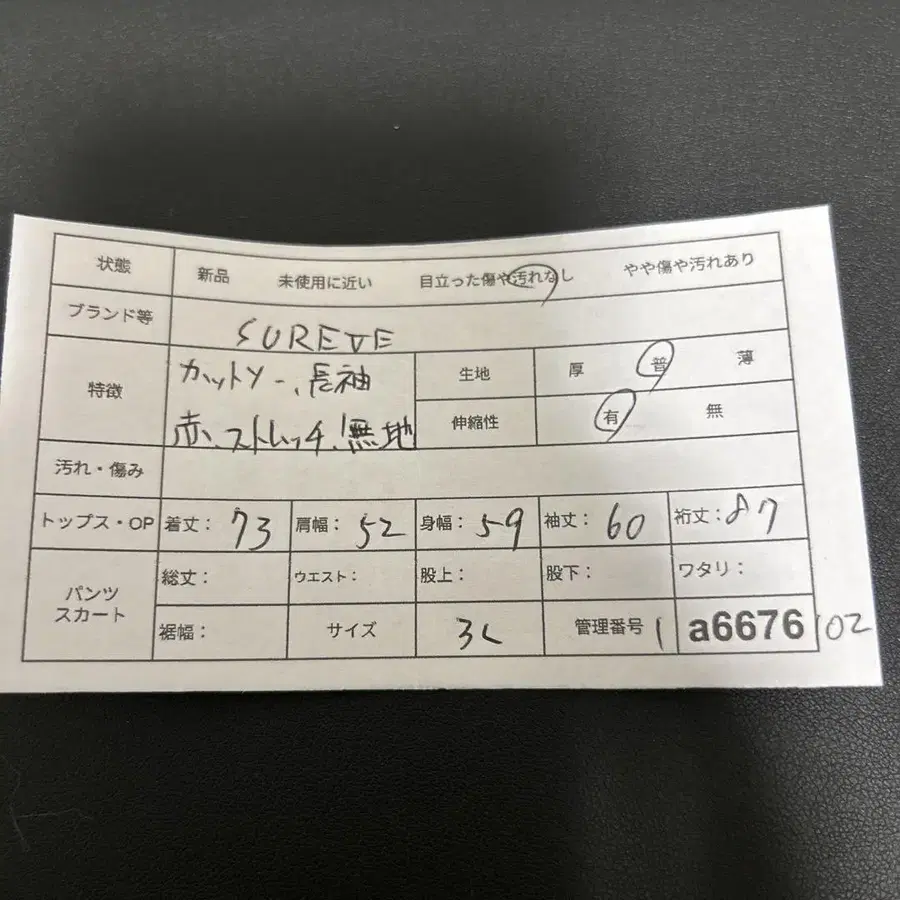 状態 新品 未使用に近い 目立った傷や汚れなし やや傷や汚れあり
ブランド等 SUREVE
特徴 カットソー、長袖 生地 厚 普 薄
赤、ストレッチ、無地 伸縮性 有 無
汚れ・傷み
トップス・OP 着丈: 73 肩幅: 52 身幅: 59 袖丈: 60 裄丈: 87
パンツ スカート 総丈: ウエスト: 股上: 股下: ワタリ:
裾幅: サイズ 3L 管理番号 1 a6676 102